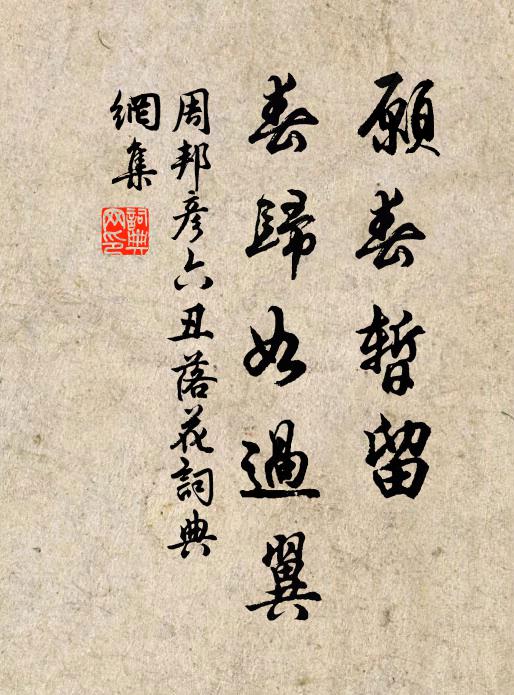 願春暫留
春歸如過翼
周邦彥六丑落花詞典
網集
詞典網印